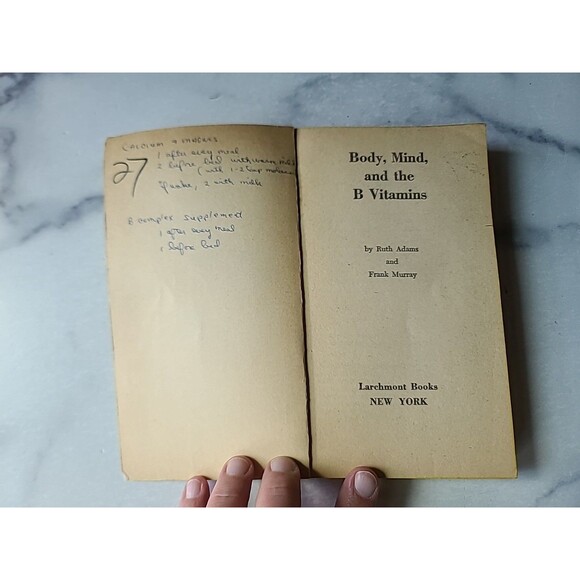 Calcium +
27
1 after every meal
2 before bed with warm milk
(with 1-2 tbsp
2 with milk
B complex supplement
1 after every meal
1 before bed
Body, Mind,
and the
B Vitamins
by Ruth Adams
and
Frank Murray
Larchmont Books
NEW YORK